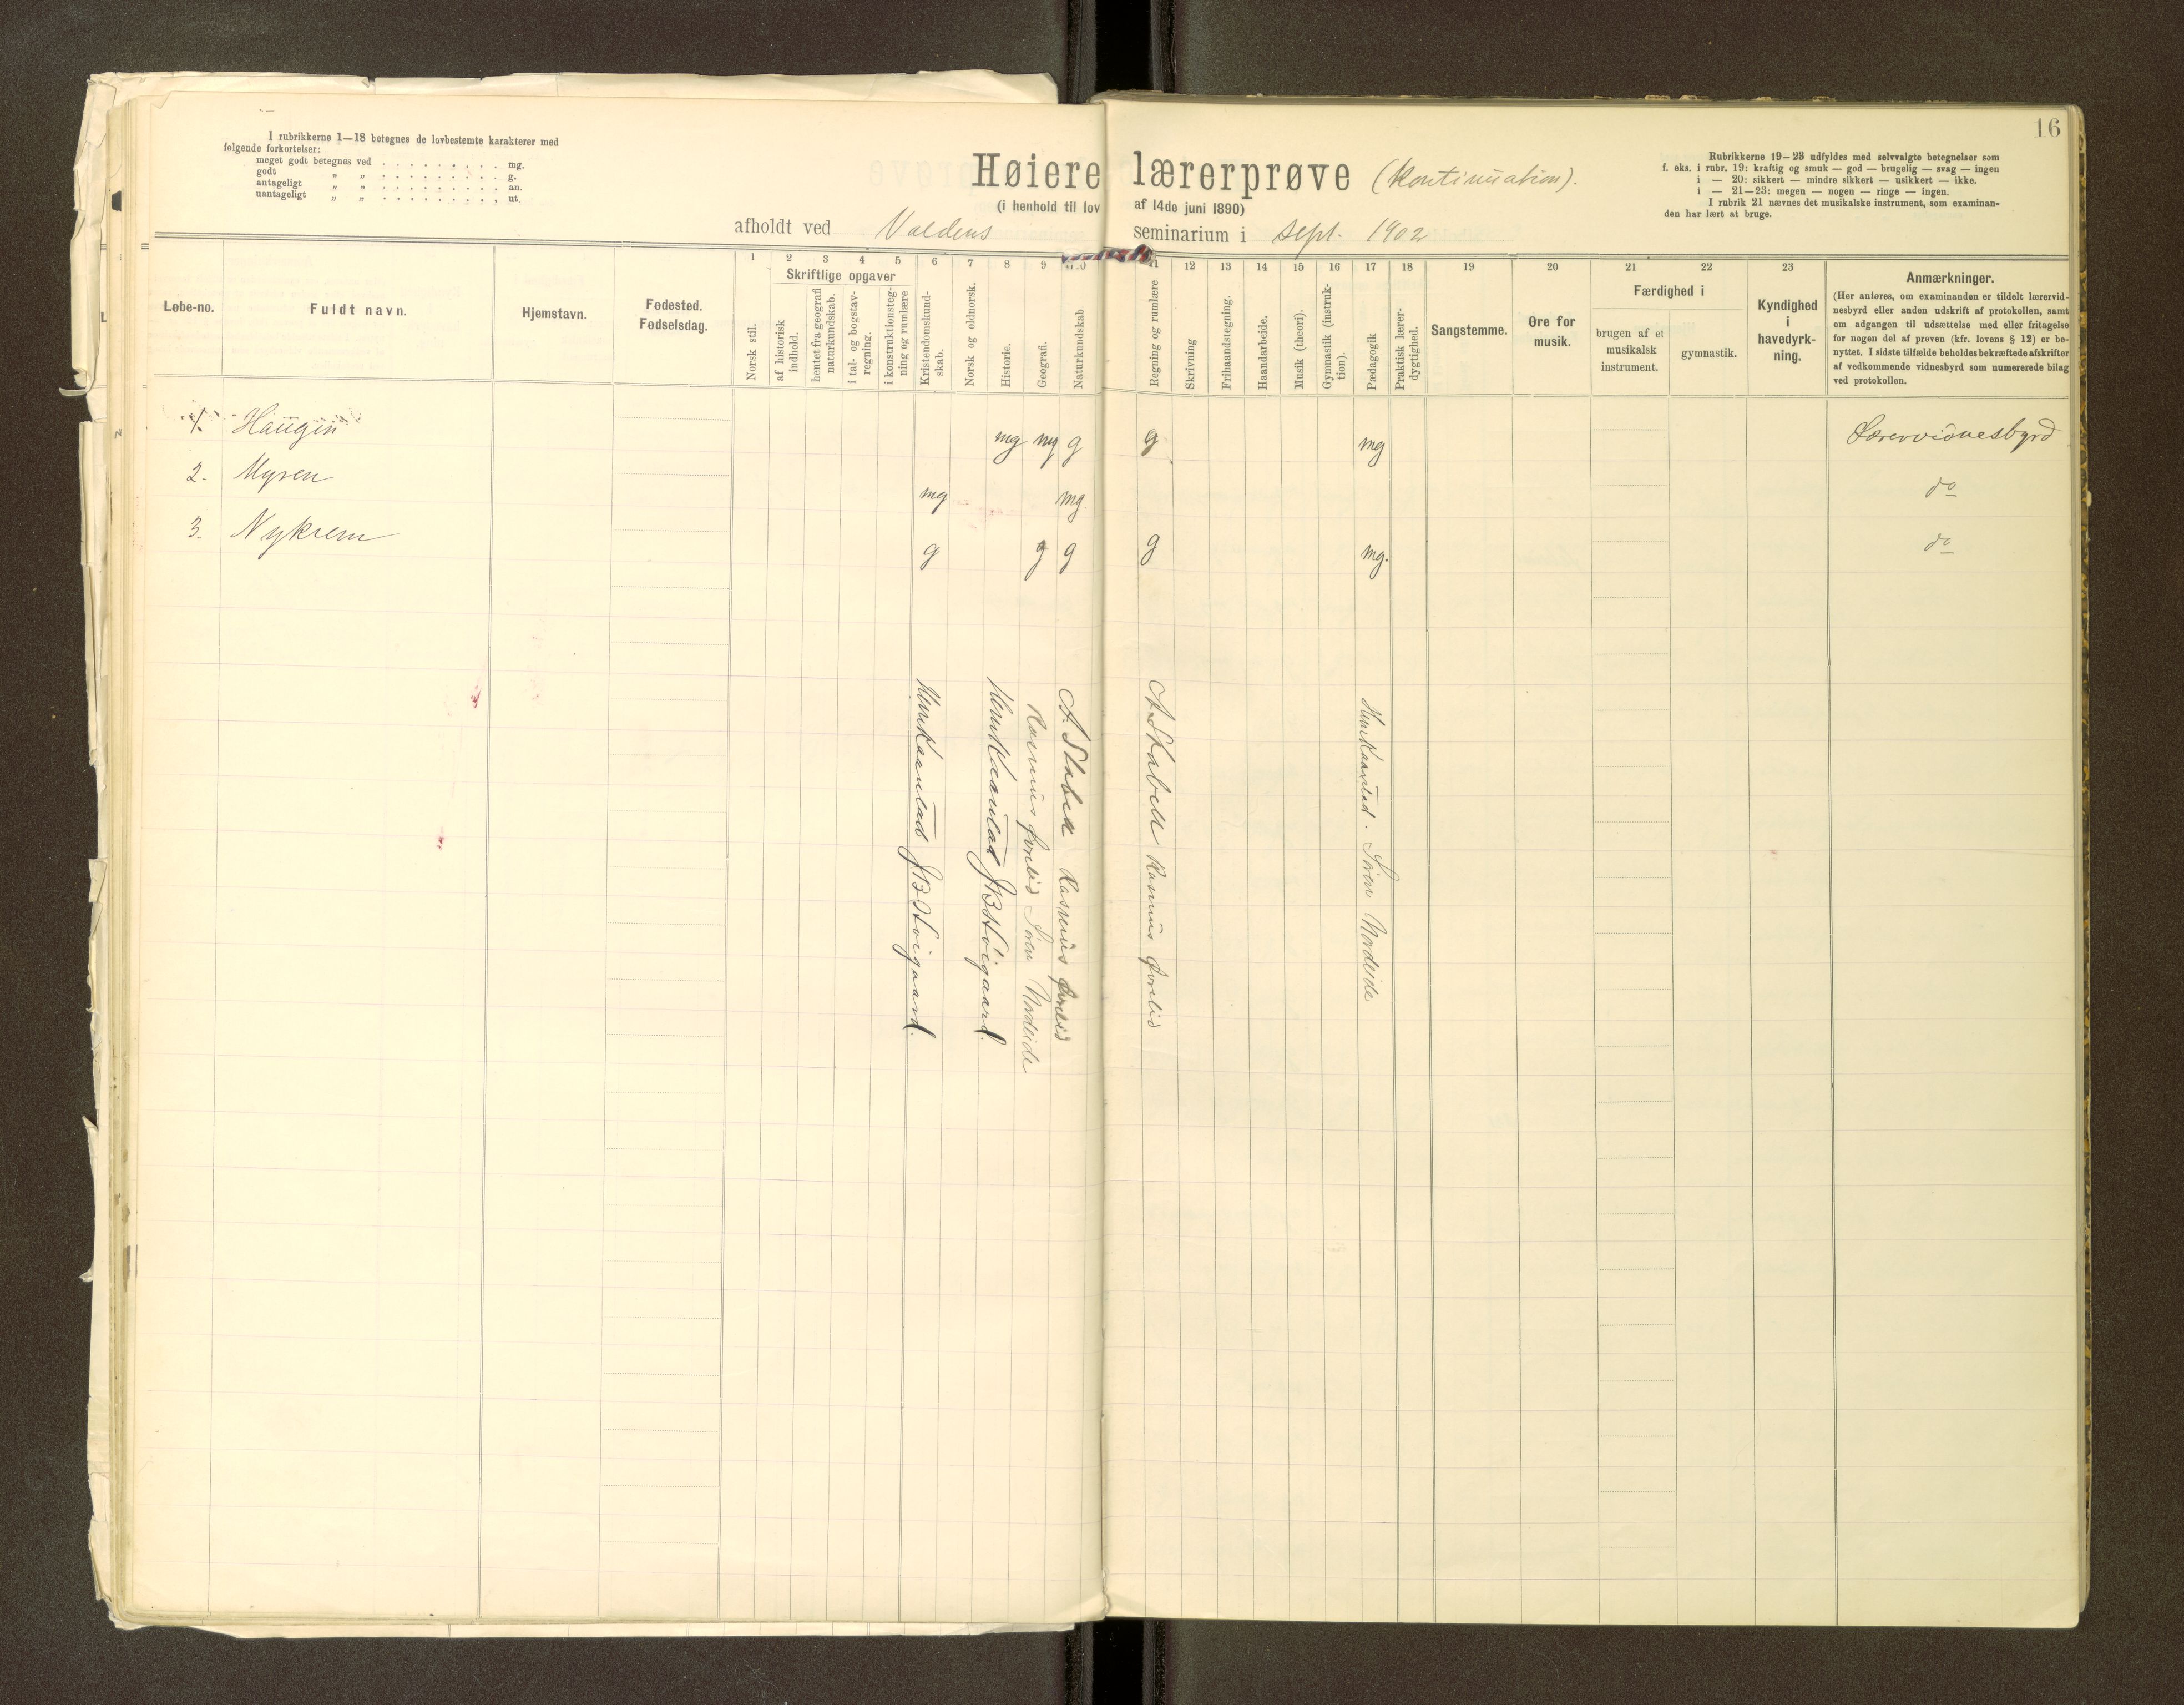 16
I rubrikkerne 1—18 betegnes de lovbestemte karakterer med
følgende forkortelser:
meget godt betegnes ved . . . . . . . . . mg.
godt „ „ . . . . . . . . . g.
antageligt „ „ . . . . . . . . . an.
uantageligt „ „ . . . . . . . . . ut.
Høiere lærerprøve (kontinuation).
(i henhold til lov af 14de juni 1890)
afholdt ved Voldens seminarium i sept. 1902
Rubrikkerne 19—23 udfyldes med selvvalgte betegnelser som
f. eks. i rubr. 19: kraftig og smuk — god — brugelig — svag — ingen
i — 20: sikkert — mindre sikkert — usikkert — ikke.
i — 21—23: megen — nogen — ringe — ingen.
I rubrik 21 nævnes det musikalske instrument, som examinan-
den har lært at bruge.
Løbe-no.
Fuldt navn.
Hjemstavn.
Fødested.
Fødselsdag.
1 2 3 4 5 6 7 8 9 10 11 12 13 14 15 16 17 18 19 20 21 22 23
Skriftlige opgaver
Norsk stil.
af historisk
indhold.
hentet fra geografi
naturkundskab.
i tal- og bogstav-
regning.
i konstruktionsteg-
ning og rumlære
Kristendomskund-
skab.
Norsk og oldnorsk.
Historie.
Geografi.
Naturkundskab
Regning og rumlære
Skrivning
Frihaandstegning.
Haandarbeide.
Musik (theori).
Gymnastik (instruk-
tion).
Pædagogik
Praktisk lærer-
dygtighed.
Sangstemme.
Øre for
musik.
Færdighed i
brugen af et
musikalsk
instrument.
gymnastik.
Kyndighed
i
havedyrk-
ning.
Anmærkninger.
(Her anføres, om examinanden er tildelt lærervid-
nesbyrd eller anden udskrift af protokollen, samt
om adgangen til udsættelse med eller fritagelse
for nogen del af prøven (kfr. lovens § 12) er be-
nyttet. I sidste tilfælde beholdes bekræftede afskrifter
af vedkommende vidnesbyrd som numererede bilag
ved protokollen.
1. Haugen mg mg g g mg Lærervidnesbyrd
2. Myren mg mg do
3. Nykrem g g g g mg. do
Henr Kaarstad J B Høigaard.
Henr Kaarstad J B Høigaard.
Rasmus Øvrelid Søren Nordeide
A. Stabell Rasmus Øvrelid
A. Stabell Rasmus Øvrelid
Henr Kaarstad. Søren Nordeide